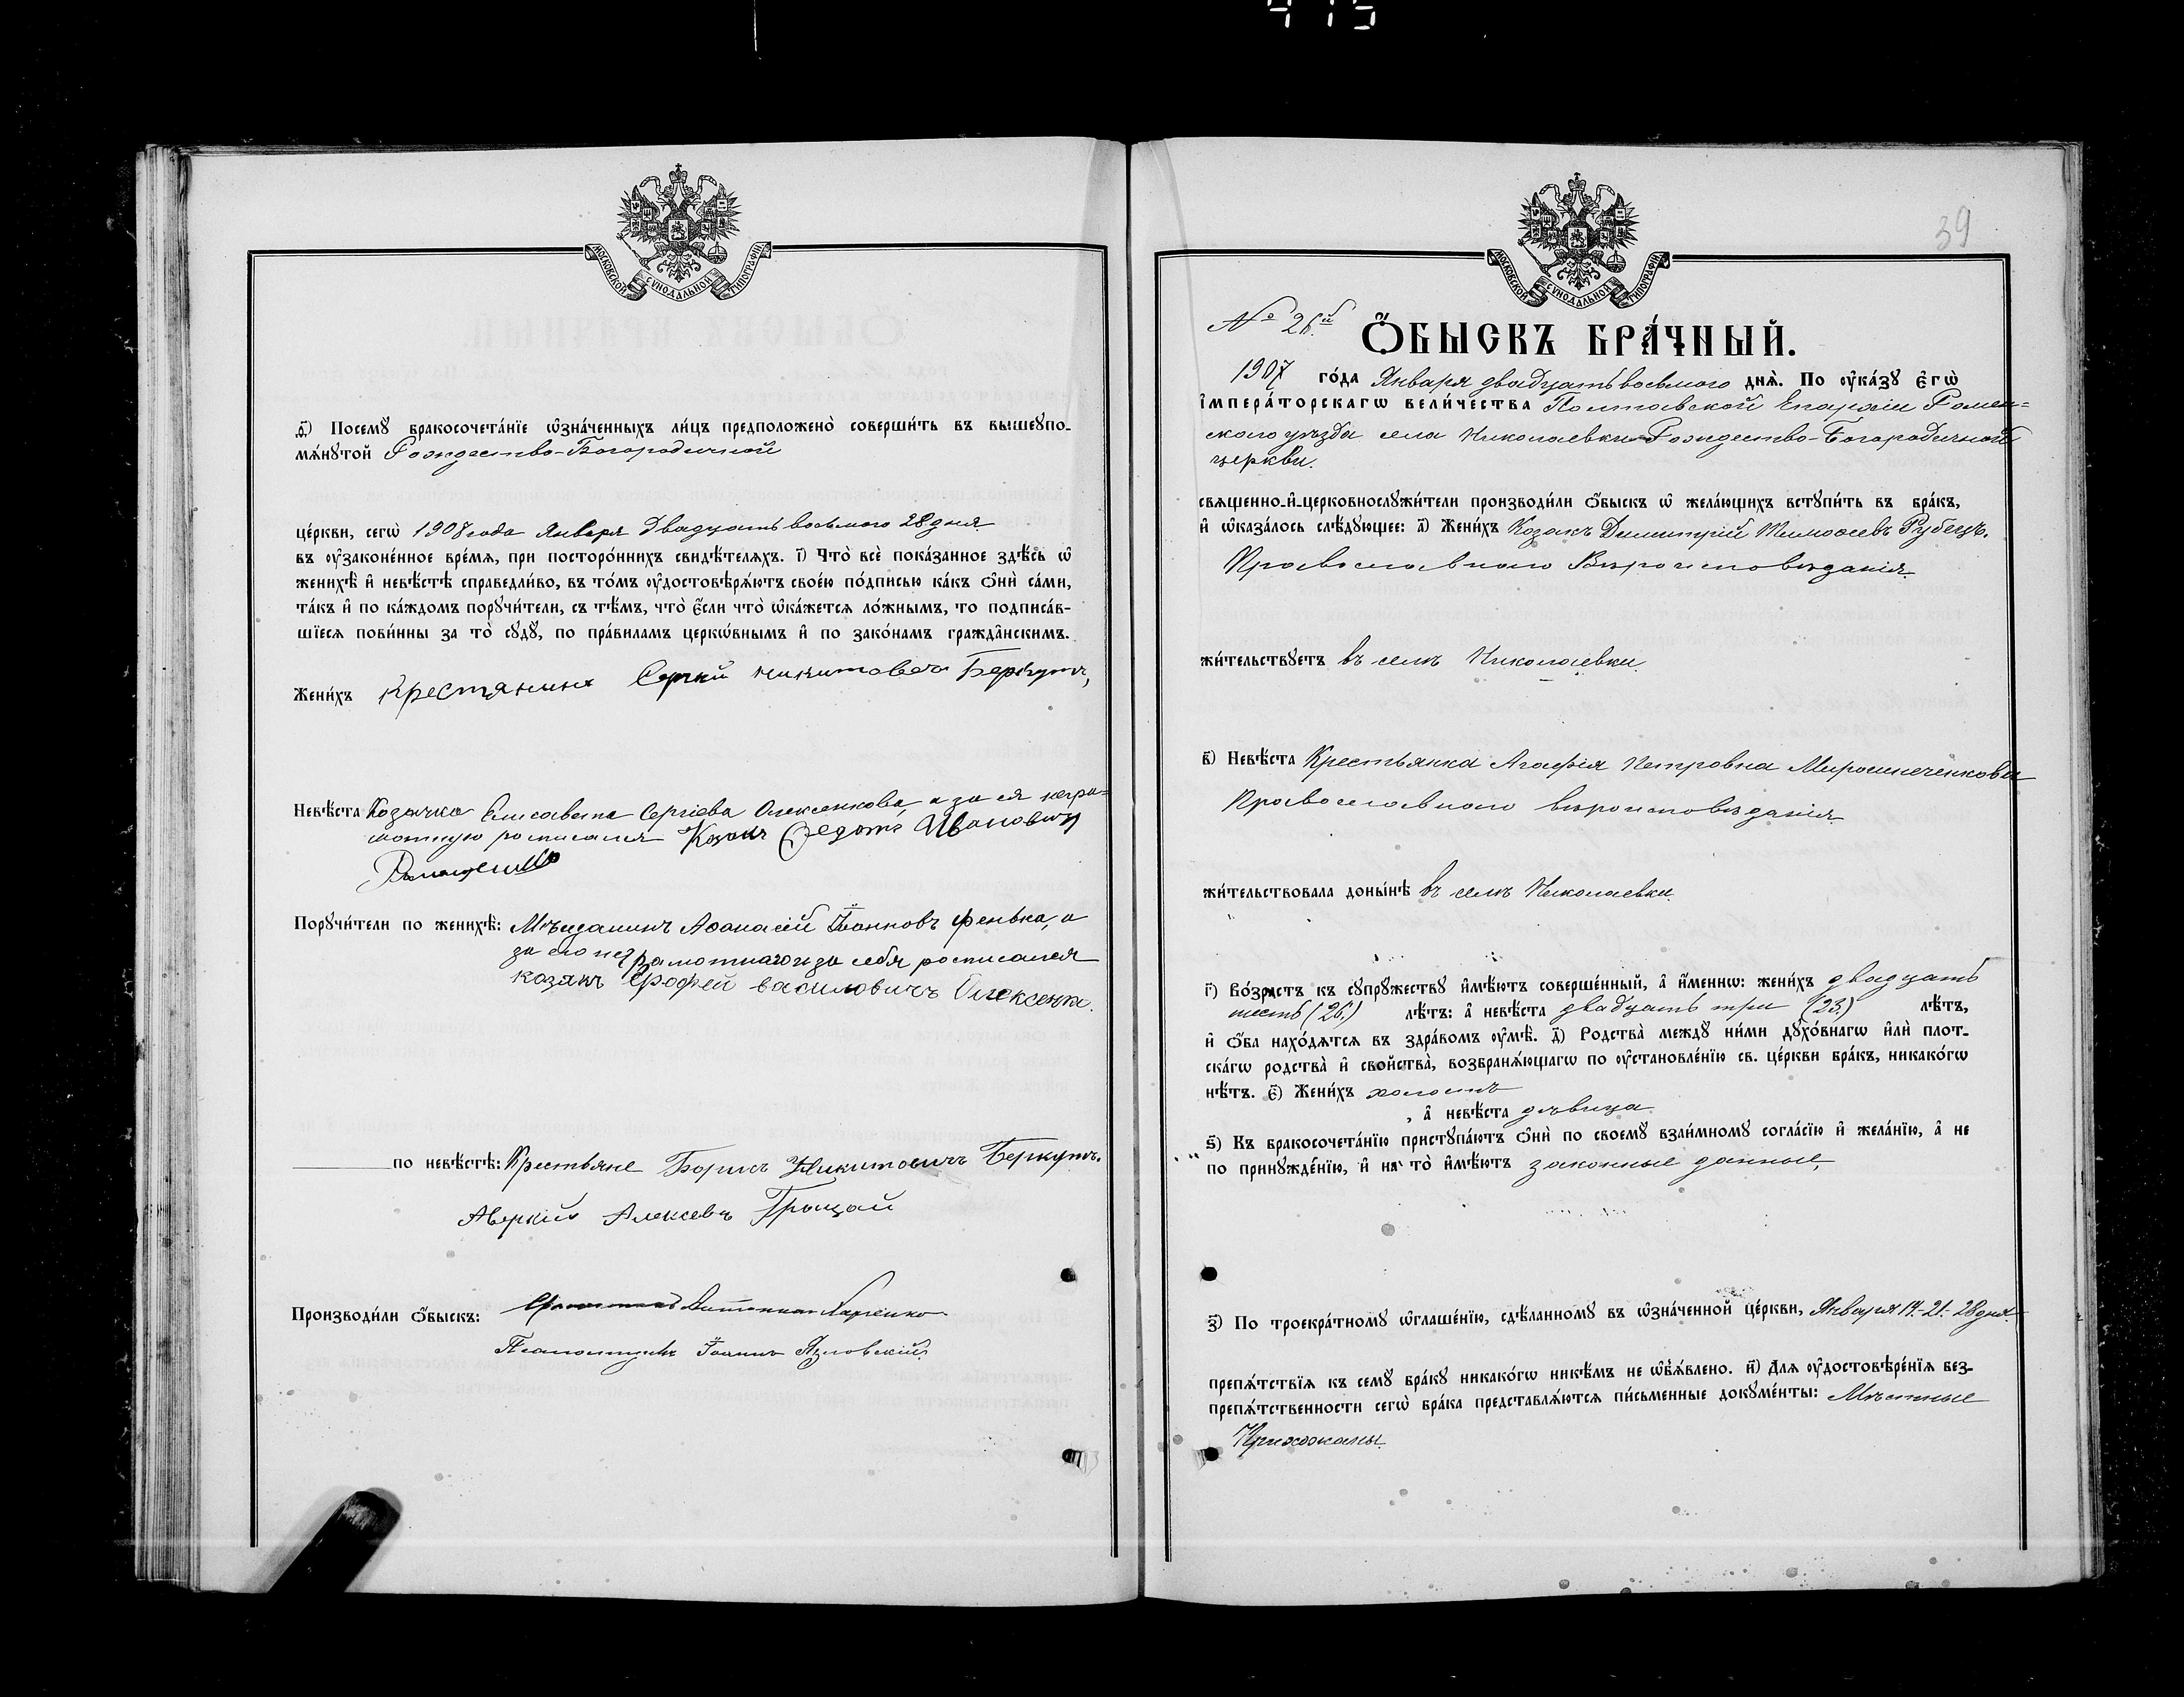 МОСКОВСКОЙ СУНОДАЛЬНОЙ ТИПОГРАФІИ
Посемꙋ бракосочета́нїе ѡ҆зна́ченныхъ ли́цъ предположено̀ соверши́ть въ вышеꙋпо-
мѧ́нꙋтой Рождество-Богородичной
це́ркви, сегѡ̀ 1908 года Января двадцать восьмого 28 дня
въ ᲂу҆законе́нное вре́мѧ, при посторо́ннихъ свидѣ́телѧхъ. і҃) Что̀ всѐ пока́занное здѣ́сь ѡ҆
женихѣ̀ и҆ невѣ́стѣ справедли́во, въ то́мъ ᲂу҆достовѣрѧ́ютъ свое́ю по́дписью ка́къ ѻ҆нѝ са́ми,
та́къ и҆ по ка́ждомъ порꙋчи́тели, съ тѣ́мъ, что̀ є҆́сли что̀ ѡ҆ка́жетсѧ ло́жнымъ, то подписа́в-
шїесѧ пови́нны за то̀ сꙋдꙋ̀, по пра́виламъ церкѡ́внымъ и҆ по зако́намъ гражда̑нскимъ.
Жени́хъ Крестянинъ Сергий никитовечъ Беркутъ,
Невѣ́ста Козачка Елисавета Сергіева Олексенкова, а за ея негра-
мотную росписался Козакъ Федотъ Ивановичъ
Порꙋчи́тели по женихѣ̀: Мѣщанинъ Аѳанасій Іоанновъ Фенька, а
за его неграмотнаго и за себя росписался
козакъ Ерофей василовичъ Олексенко.
по невѣ́стѣ: Крестьяне Борисъ Никитовичъ Беркутъ.
Аверкій Алексевъ Грицай
Производи́ли ѻ҆́быскъ:
Псаломщикъ Іоаннъ Язловскій.
39
МОСКОВСКОЙ СУНОДАЛЬНОЙ ТИПОГРАФІИ
№ 26.й Ѻ҆́БЫСКЪ БРА́ЧНЫЙ.
1907 го́да Января двадцать восьмого днѧ̀. По ᲂу҆ка́зꙋ є҆гѡ̀
і҆мпера́торскагѡ вели́чества Полтавской Епархіи Ромен-
ского уѣзда села Николаевки Рождество-Богородичной
церкви.
свѧщенно-и҆-церковнослꙋжи́тели производи́ли ѻ҆́быскъ ѡ҆ жела́ющихъ встꙋпи́ть въ бра́къ,
и҆ ѡ҆каза́лось слѣ́дꙋющее: а҃) Жени́хъ Козакъ Димитрій Тимоѳеевъ Рубецъ.
Православного Вѣроисповѣданія
жи́тельствꙋетъ въ селѣ Николаевки
в҃) Невѣ́ста Крестьянка Агафія Петровна Мирошнеченкова
Православного вѣроисповѣданія
жи́тельствовала доны́нѣ въ селѣ Николаевки
г҃) Во́зрастъ къ сꙋпрꙋ́жествꙋ и҆мѣ́ютъ соверше́нный, а҆ и҆́меннѡ: жени́хъ двадцать
шесть (26.) лѣ́тъ: а҆ невѣ́ста двадцать три (23.) лѣ́тъ,
и҆ ѻ҆́ба нахо́дѧтсѧ въ здра́вомъ ᲂу҆мѣ̀. д҃) Родства̀ междꙋ̀ ни́ми дꙋхо́внагѡ и҆лѝ плот-
ска́гѡ родства̀ и҆ сво́йства̀, возбранѧ́ющагѡ по ᲂу҆становле́нїю св. це́ркви бра́къ, никако́гѡ
нѣ́тъ. є҃) Жени́хъ холостъ
, а҆ невѣ́ста дѣвица
ѕ҃) Къ бракосочета́нїю пристꙋпа́ютъ ѻ҆нѝ по своемꙋ̀ взаи́мномꙋ согла́сїю и҆ жела́нїю, а҆ не
по принꙋжде́нїю, и҆ на то̀ и҆мѣ́ютъ законные данные,
з҃) По троекра́тномꙋ ѡ҆глаше́нїю, сдѣ́ланномꙋ въ ѡ҆зна́ченной це́ркви, Января 14.- 21.- 28 дня.
препѧ́тствїѧ къ семꙋ̀ бра́кꙋ никако́гѡ никѣ́мъ не ѡ҆б̾ѧ́влено. и҃) Длѧ ᲂу҆достовѣре́нїѧ без-
препѧ́тственности сегѡ̀ бра́ка представлѧ́ютсѧ пи́сьменные докꙋме́нты: Мѣстные
Прихожаны